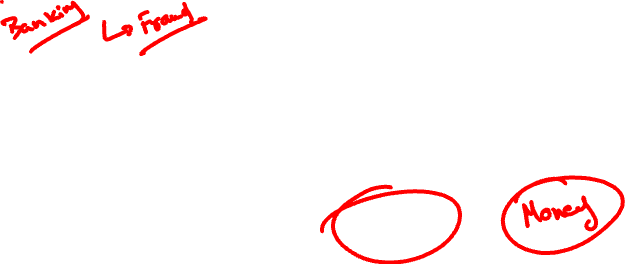 Banking ↳ Fraud
Money